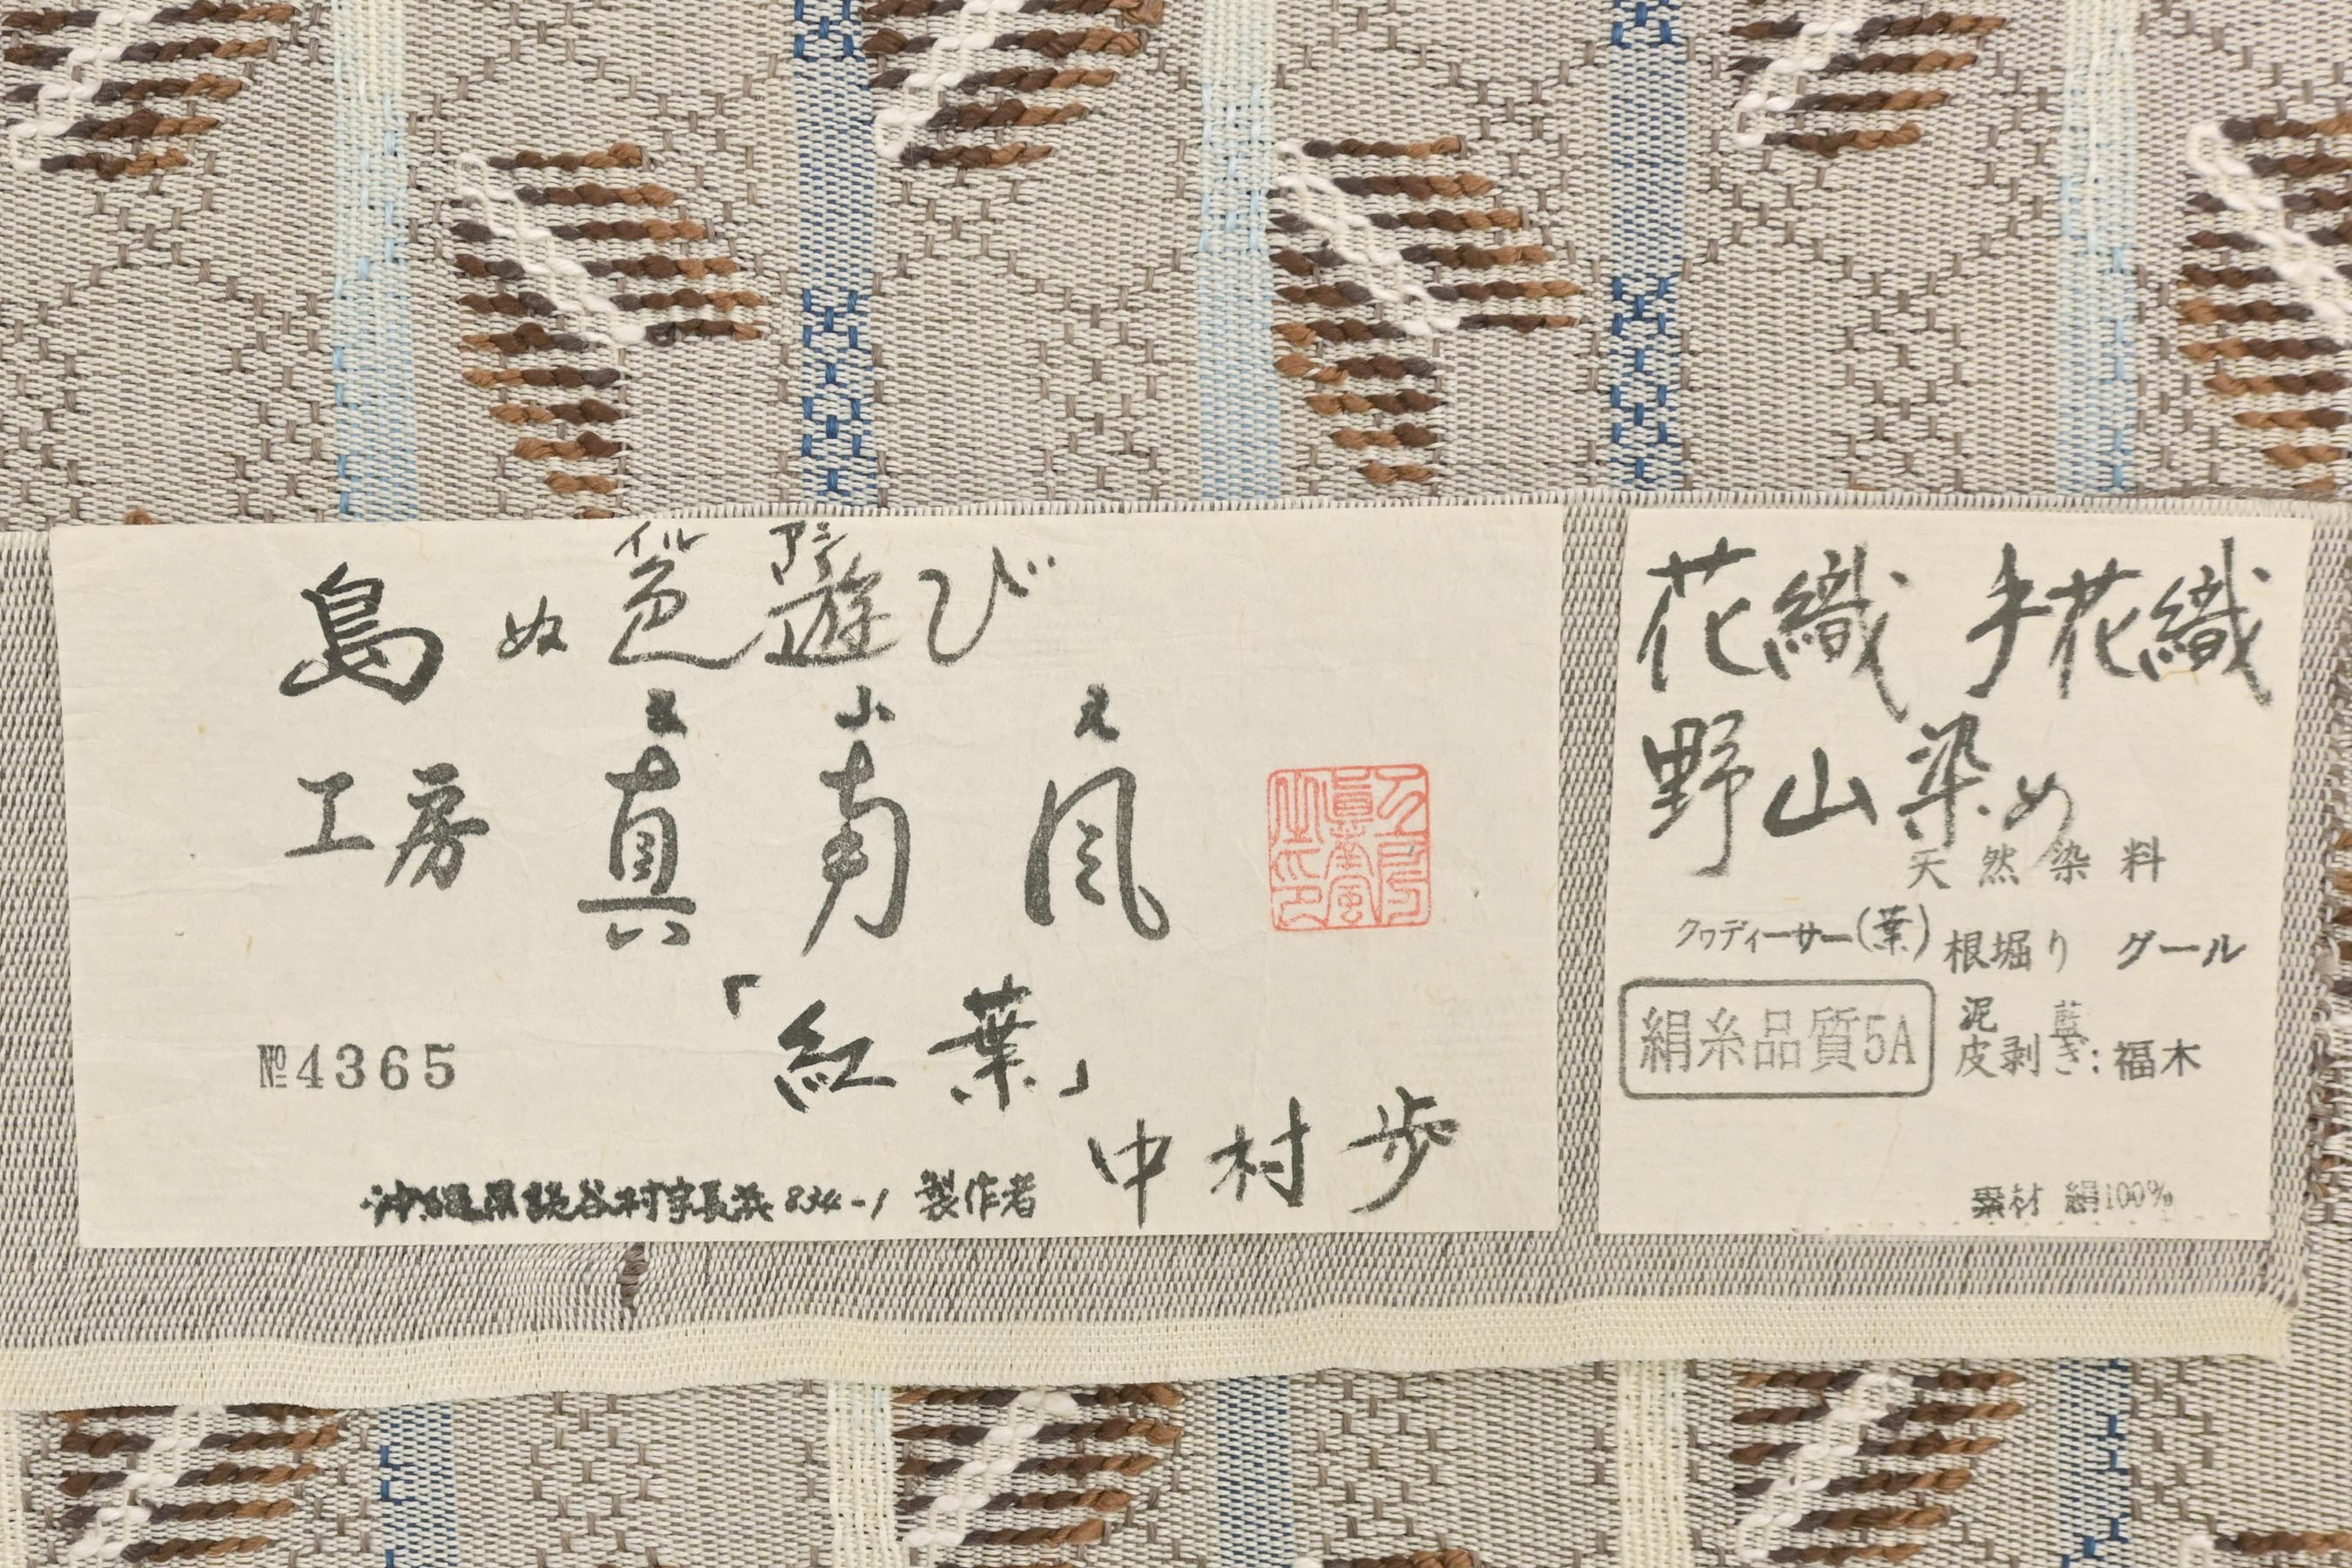 イル アシ
島ぬ色遊び
ま ふ え
工房 真南風
「紅葉」
№4365
中村歩
沖縄県読谷村字長浜834-1 製作者
花織 手花織
野山染め
天然染料
クワディーサー(葉) 根堀り グール
泥 藍
絹糸品質5A
皮剥き:福木
素材 絹100%